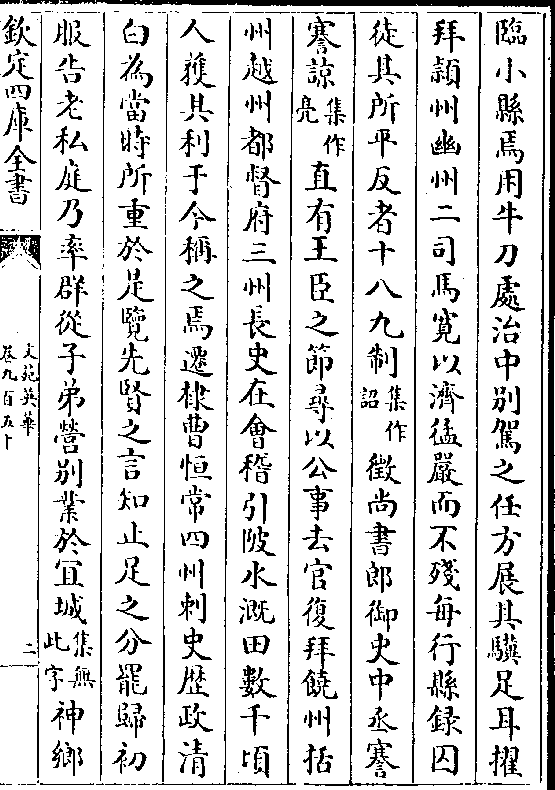 臨小縣焉用牛刀處治中別駕之任方展其驥足耳擢
拜潁州幽州二司馬寛以濟猛嚴而不殘每行縣録囚
徒其所平反者十八九制集作詔徵尚書郎御史中丞謇
謇諒集作亮直有王臣之節尋以公事去官復拜饒州括
州越州都督府三州長史在會稽引陂水溉田數千頃
人獲其利于今稱之焉遷棣曹恒常四州刺史歴政清
白為當時所重於是覽先賢之言知止足之分罷歸初
服告老私庭乃率群從子弟營别業於宜城集無此字神鄉
欽定四庫全書
文苑英華
卷九百五十
二